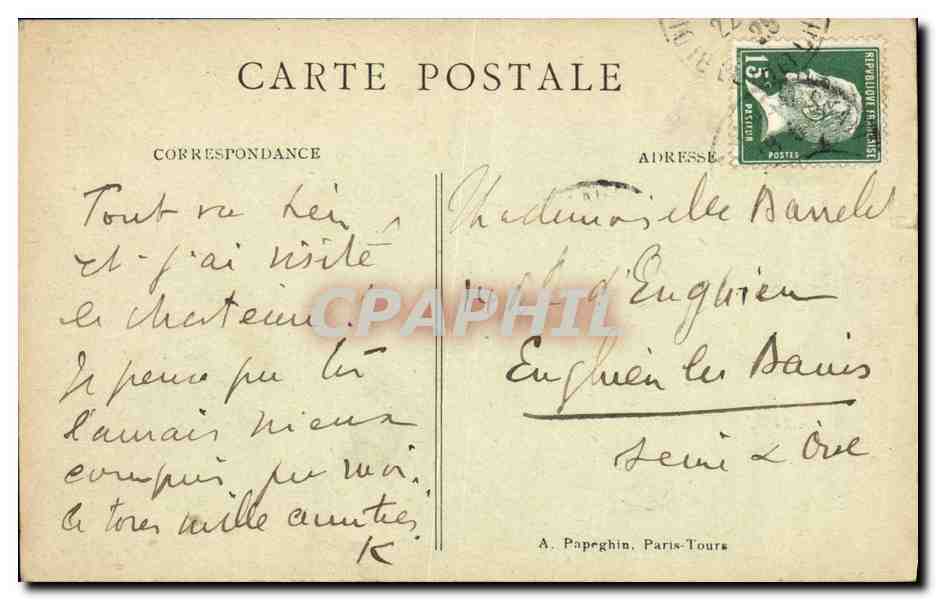 CARTE POSTALE
CORRESPONDANCE
ADRESSE
15ᶜ
REPUBLIQUE FRANCAISE
PASTEUR
POSTES
Tout va bien
et j'ai visité
le chateau !
Je pense que tu
l'aurais mieux
compris que moi.
A tous mille amitiés
K
Mademoiselle
d'Enghien
Enghien les Bains
Seine & Oise
CPAPHIL
A. Papeghin, Paris-Tours